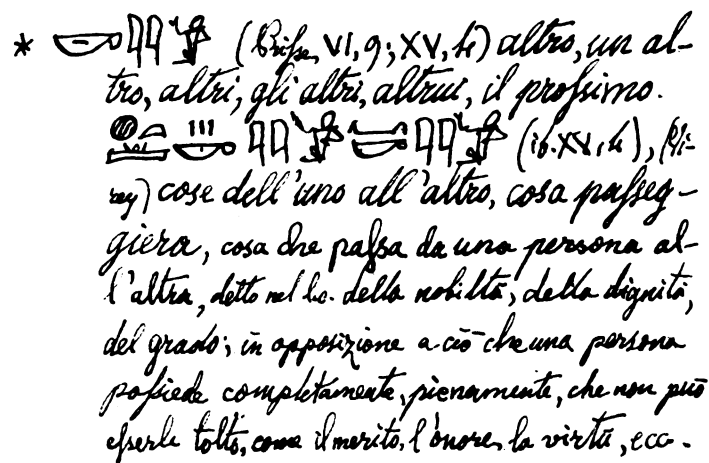 * 𓎡𓇌 (Priſse, VI, 9; XV, 4) altro, un al-
tro, altri, gli altri, altrui, il proſsimo.
(ib. XV, 4), (Vi-
rey) cose dell'uno all'altro, cosa paſseg-
giera, cosa che paſsa da una persona al-
l'altra, detto nel l.c. della nobiltà, della dignità,
del grado; in opposizione a ciò che una persona
poſsiede completamente, pienamente, che non può
eſserle tolto, come il merito, l'onore, la virtù, ecc.